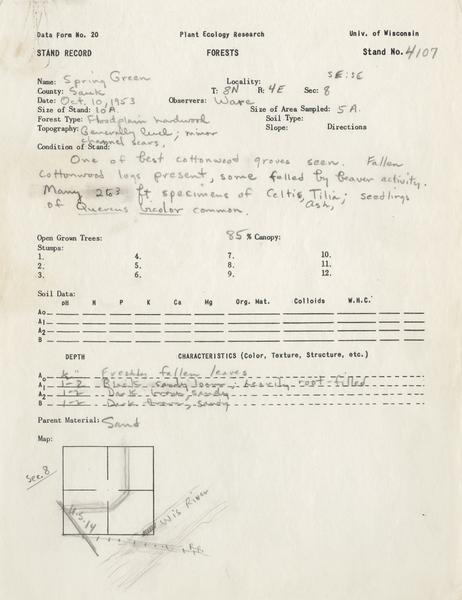 Data Form No. 20 Plant Ecology Research Univ. of Wisconsin
STAND RECORD FORESTS Stand No. 4107
Name: Spring Green Locality: SE; SE
County: Sauk T: 8N R: 4E Sec: 8
Date: Oct. 10, 1953 Observers: Ware
Size of Stand: 10 A. Size of Area Sampled: 5 A.
Forest Type: Floodplain hardwood Soil Type:
Topography: Generally level; minor Slope: Directions
channel scars,
Condition of Stand:
One of best cottonwood groves seen. Fallen
cottonwood logs present, some felled by beaver activity.
Many 2 to 3 ft specimens of Celtis, Tilia; seedlings
Ash,
of Quercus bicolor common.
Open Grown Trees: 85 % Canopy:
Stumps:
1. 4. 7. 10.
2. 5. 8. 11.
3. 6. 9. 12.
Soil Data:
pH N P K Ca Mg Org. Mat. Colloids W.H.C.
Ao
A1
A2
B
DEPTH CHARACTERISTICS (Color, Texture, Structure, etc.)
Ao ½" Freshly fallen leaves
A1 1-2 Black sandy loam; heavily root-filled
A2 1-2 Dark brown, sandy
B 1-2 Dark brown, sandy
Parent Material: Sand
Map:
Sec. 8
U.S. 14
Wis River
R.R.